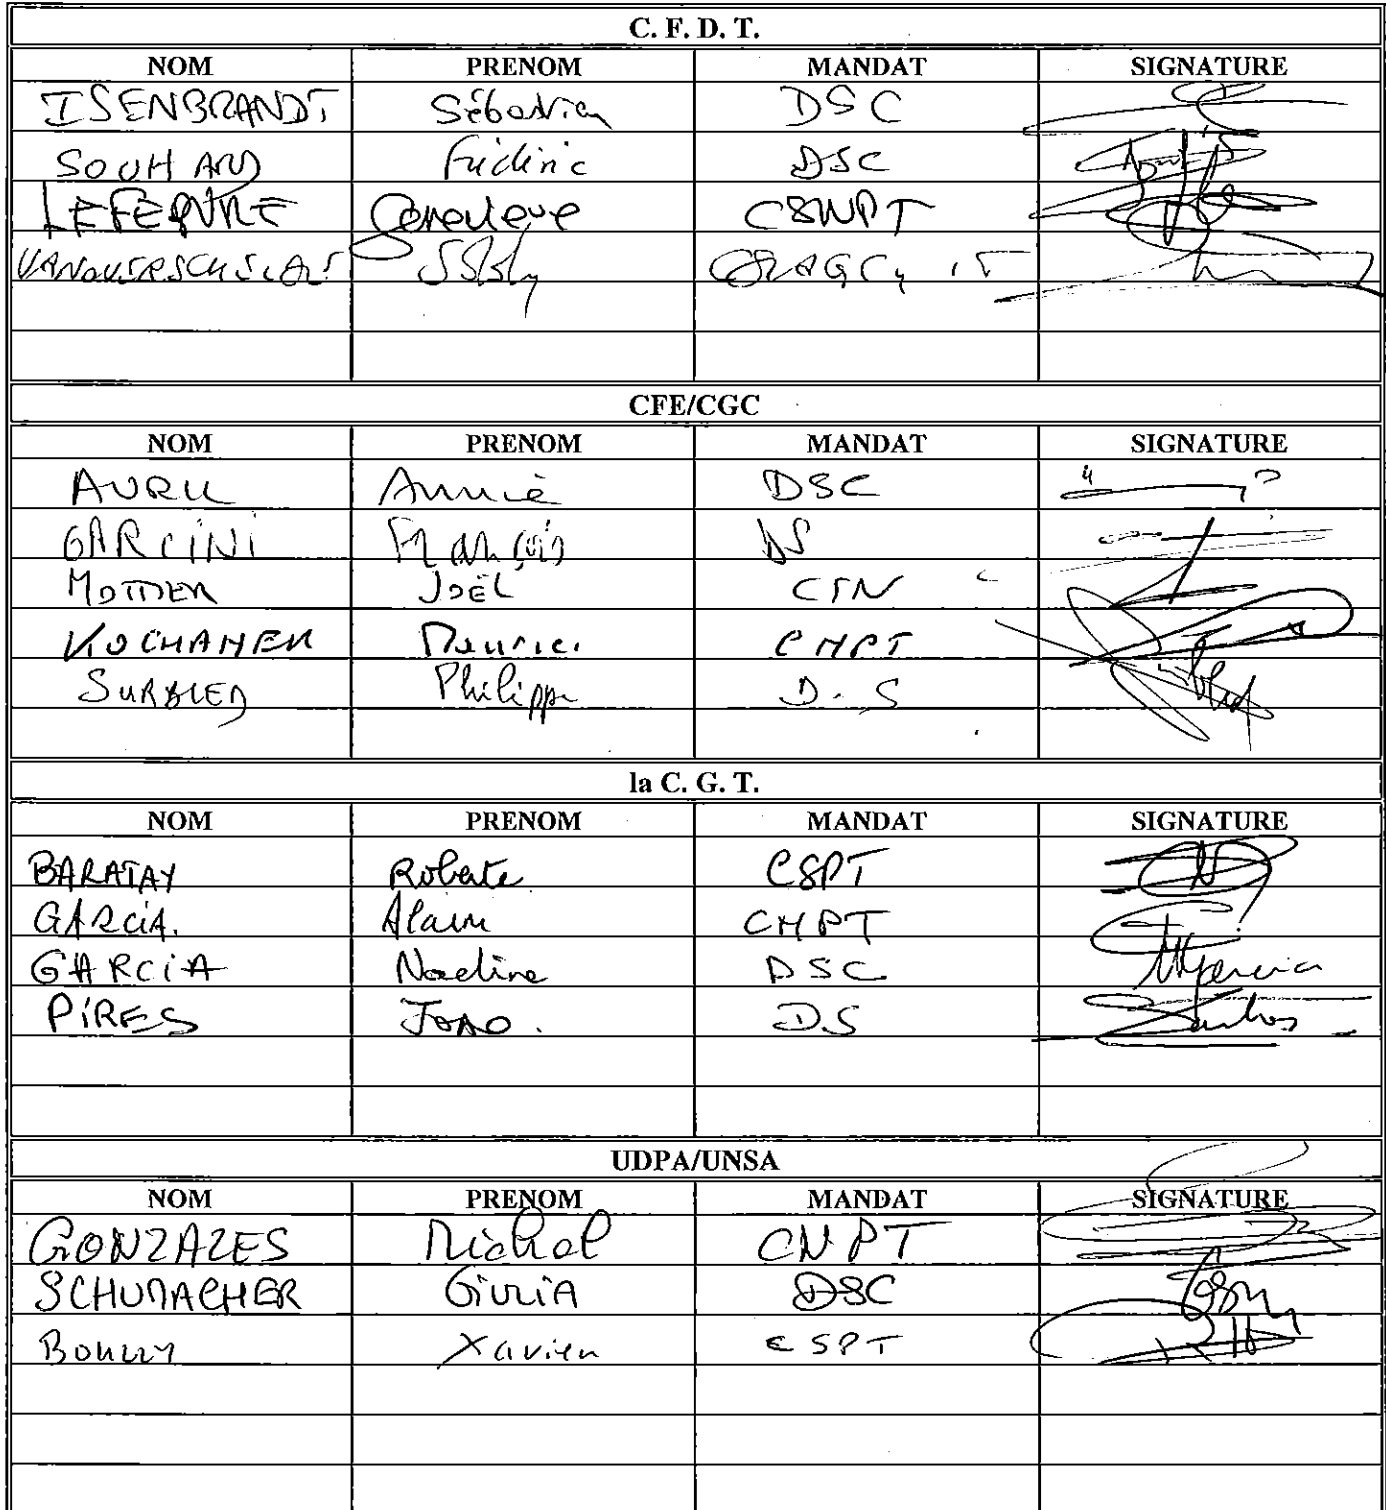 C. F. D. T.
NOM PRENOM MANDAT SIGNATURE
ISENBRANDT Sébastien DSC
SOUHARD Frédéric DSC
LEFEBVRE Geneviève
CFE/CGC
NOM PRENOM MANDAT SIGNATURE
AVRIL Annie DSC
GARCINI François DS
MOTTIER JOËL CTN
KOCHAMEK Maurice CHPT
SURBLED Philippe D.S
la C. G. T.
NOM PRENOM MANDAT SIGNATURE
BARATAY Roberte CSPT
GARCIA. Alain CHPT
GARCIA Nadine DSC
PIRES JOAO. DS
UDPA/UNSA
NOM PRENOM MANDAT SIGNATURE
GONZALES Michel CNPT
SCHUMACHER GIULIA DSC
Xavier CSPT